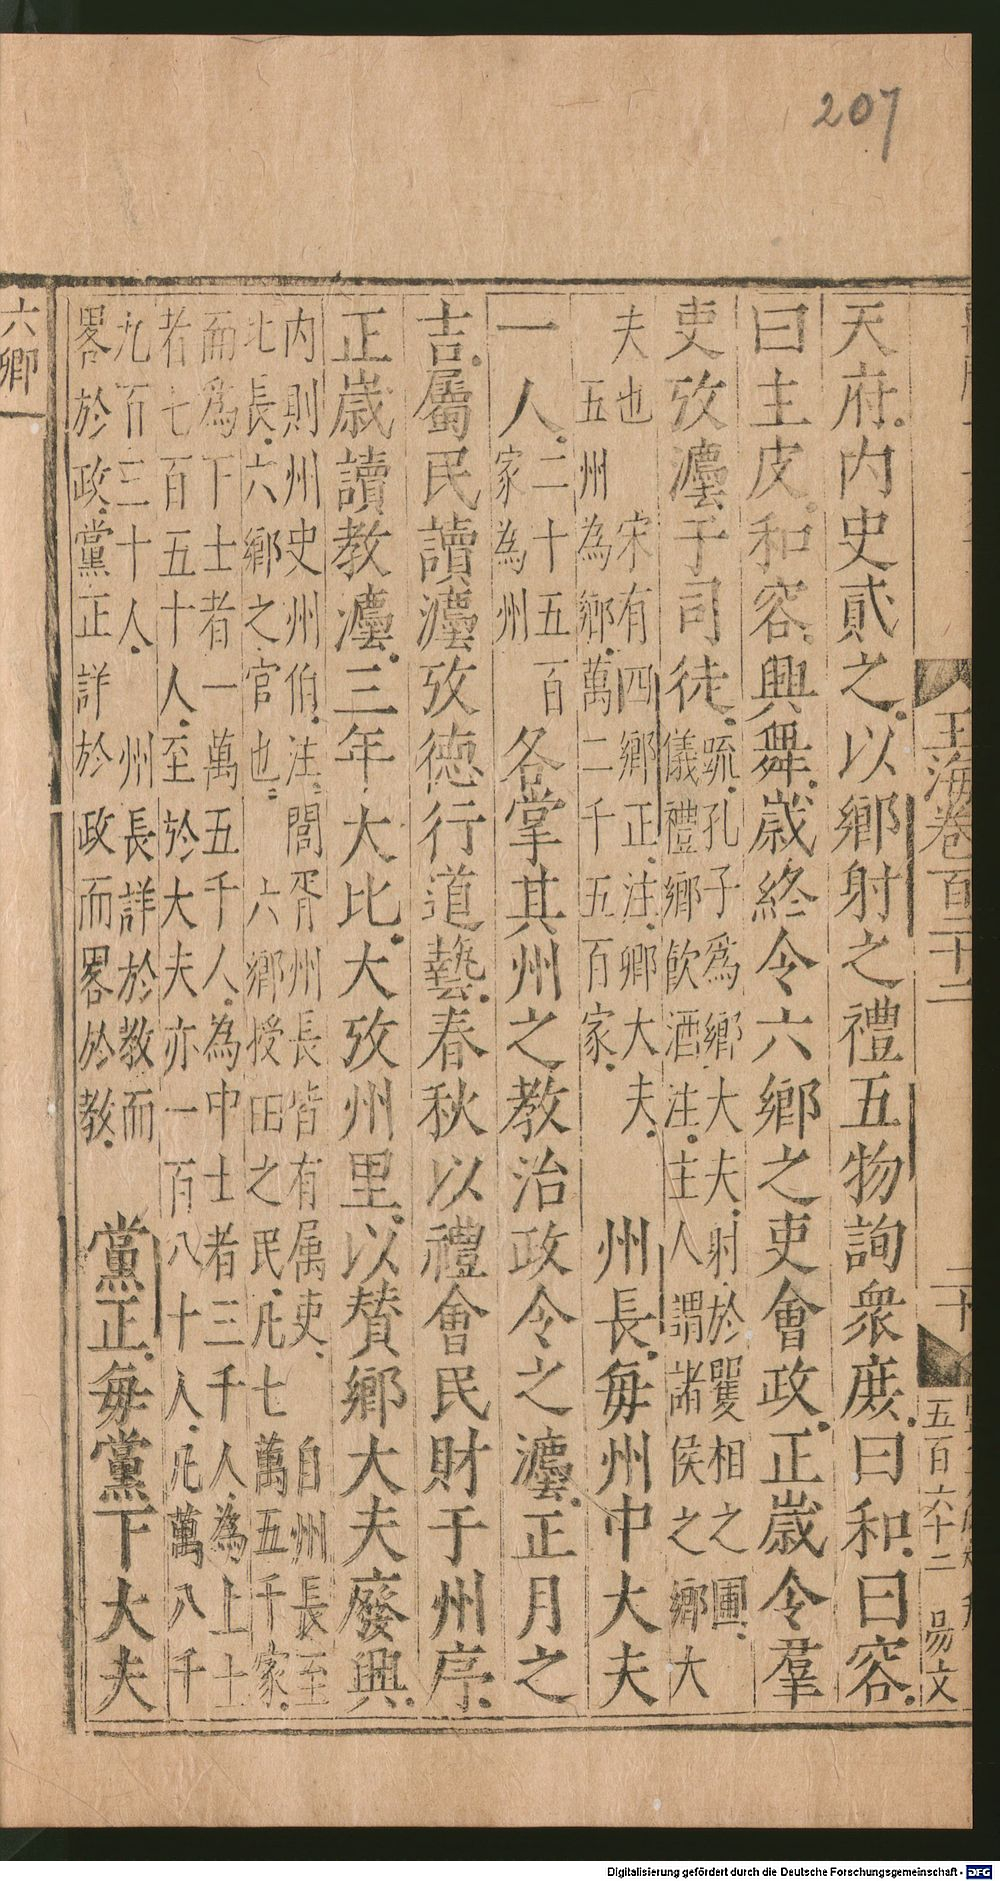 207
玉海卷百二十二
二十
五百六十二
昜文
天府.内史貳之.以鄉射之禮五物詢衆庻.曰和.曰容.
曰主皮.和容.興舞.歳終令六鄉之吏會政.正歳令羣
吏攷灋于司徒.
疏.孔子爲鄉大夫.射於矍相之圃.
儀禮鄉飲酒注.主人謂諸侯之鄉大
夫也 宋有四鄉正.注.鄉大夫.
五州為鄉.萬二千五百家.
州長.每州中大夫
一人.
二十五百
家為州
各掌其州之教治政令之灋.正月之
吉.屬民讀灋攷徳行道藝.春秋以禮會民財于州序.
正歳讀教灋.三年大比.大攷州里.以賛鄉大夫廢興.
内則州史州伯.注.閭胥州長皆有属吏. 自州長至
比長.六鄉之官也. 六鄉授田之民.凢七萬五千家.
而爲下士者一萬五千人.為中士者三千人.為上士
者七百五十人.至於大夫亦一百八十人.凢萬八千
九百三十人. 州長詳於教而
畧於政.黨正詳於政而畧於教.
黨正.每黨下大夫
六卿
Digitalisierung gefördert durch die Deutsche Forschungsgemeinschaft - DFG